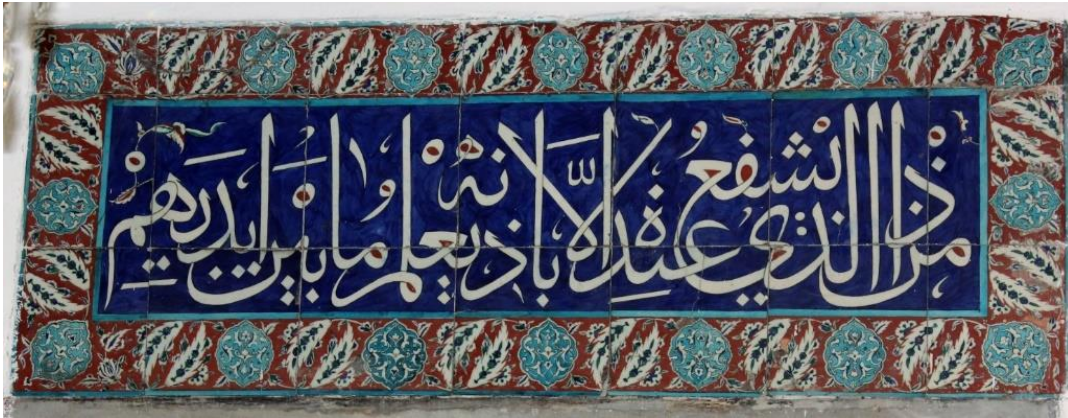 من ذا الذي يشفع عنده إلا بإذنه يعلم ما بين أيديهم و